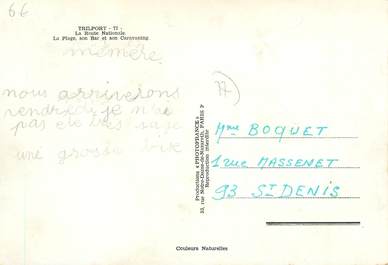 66
TRILPORT - 77 -
La Route Nationale.
La Plage, son Bar et son Caravaning
mémère
nous arriverons
vendredi je n'ai
pas été très sage
une grosse bise
77
Productions « PHOTOFRANCE »
33, rue Notre-Dame-de-Nazareth, PARIS 3e
Reproduction interdite
Mme BOQUET
1 rue MASSENET
93 St DENIS
Couleurs Naturelles